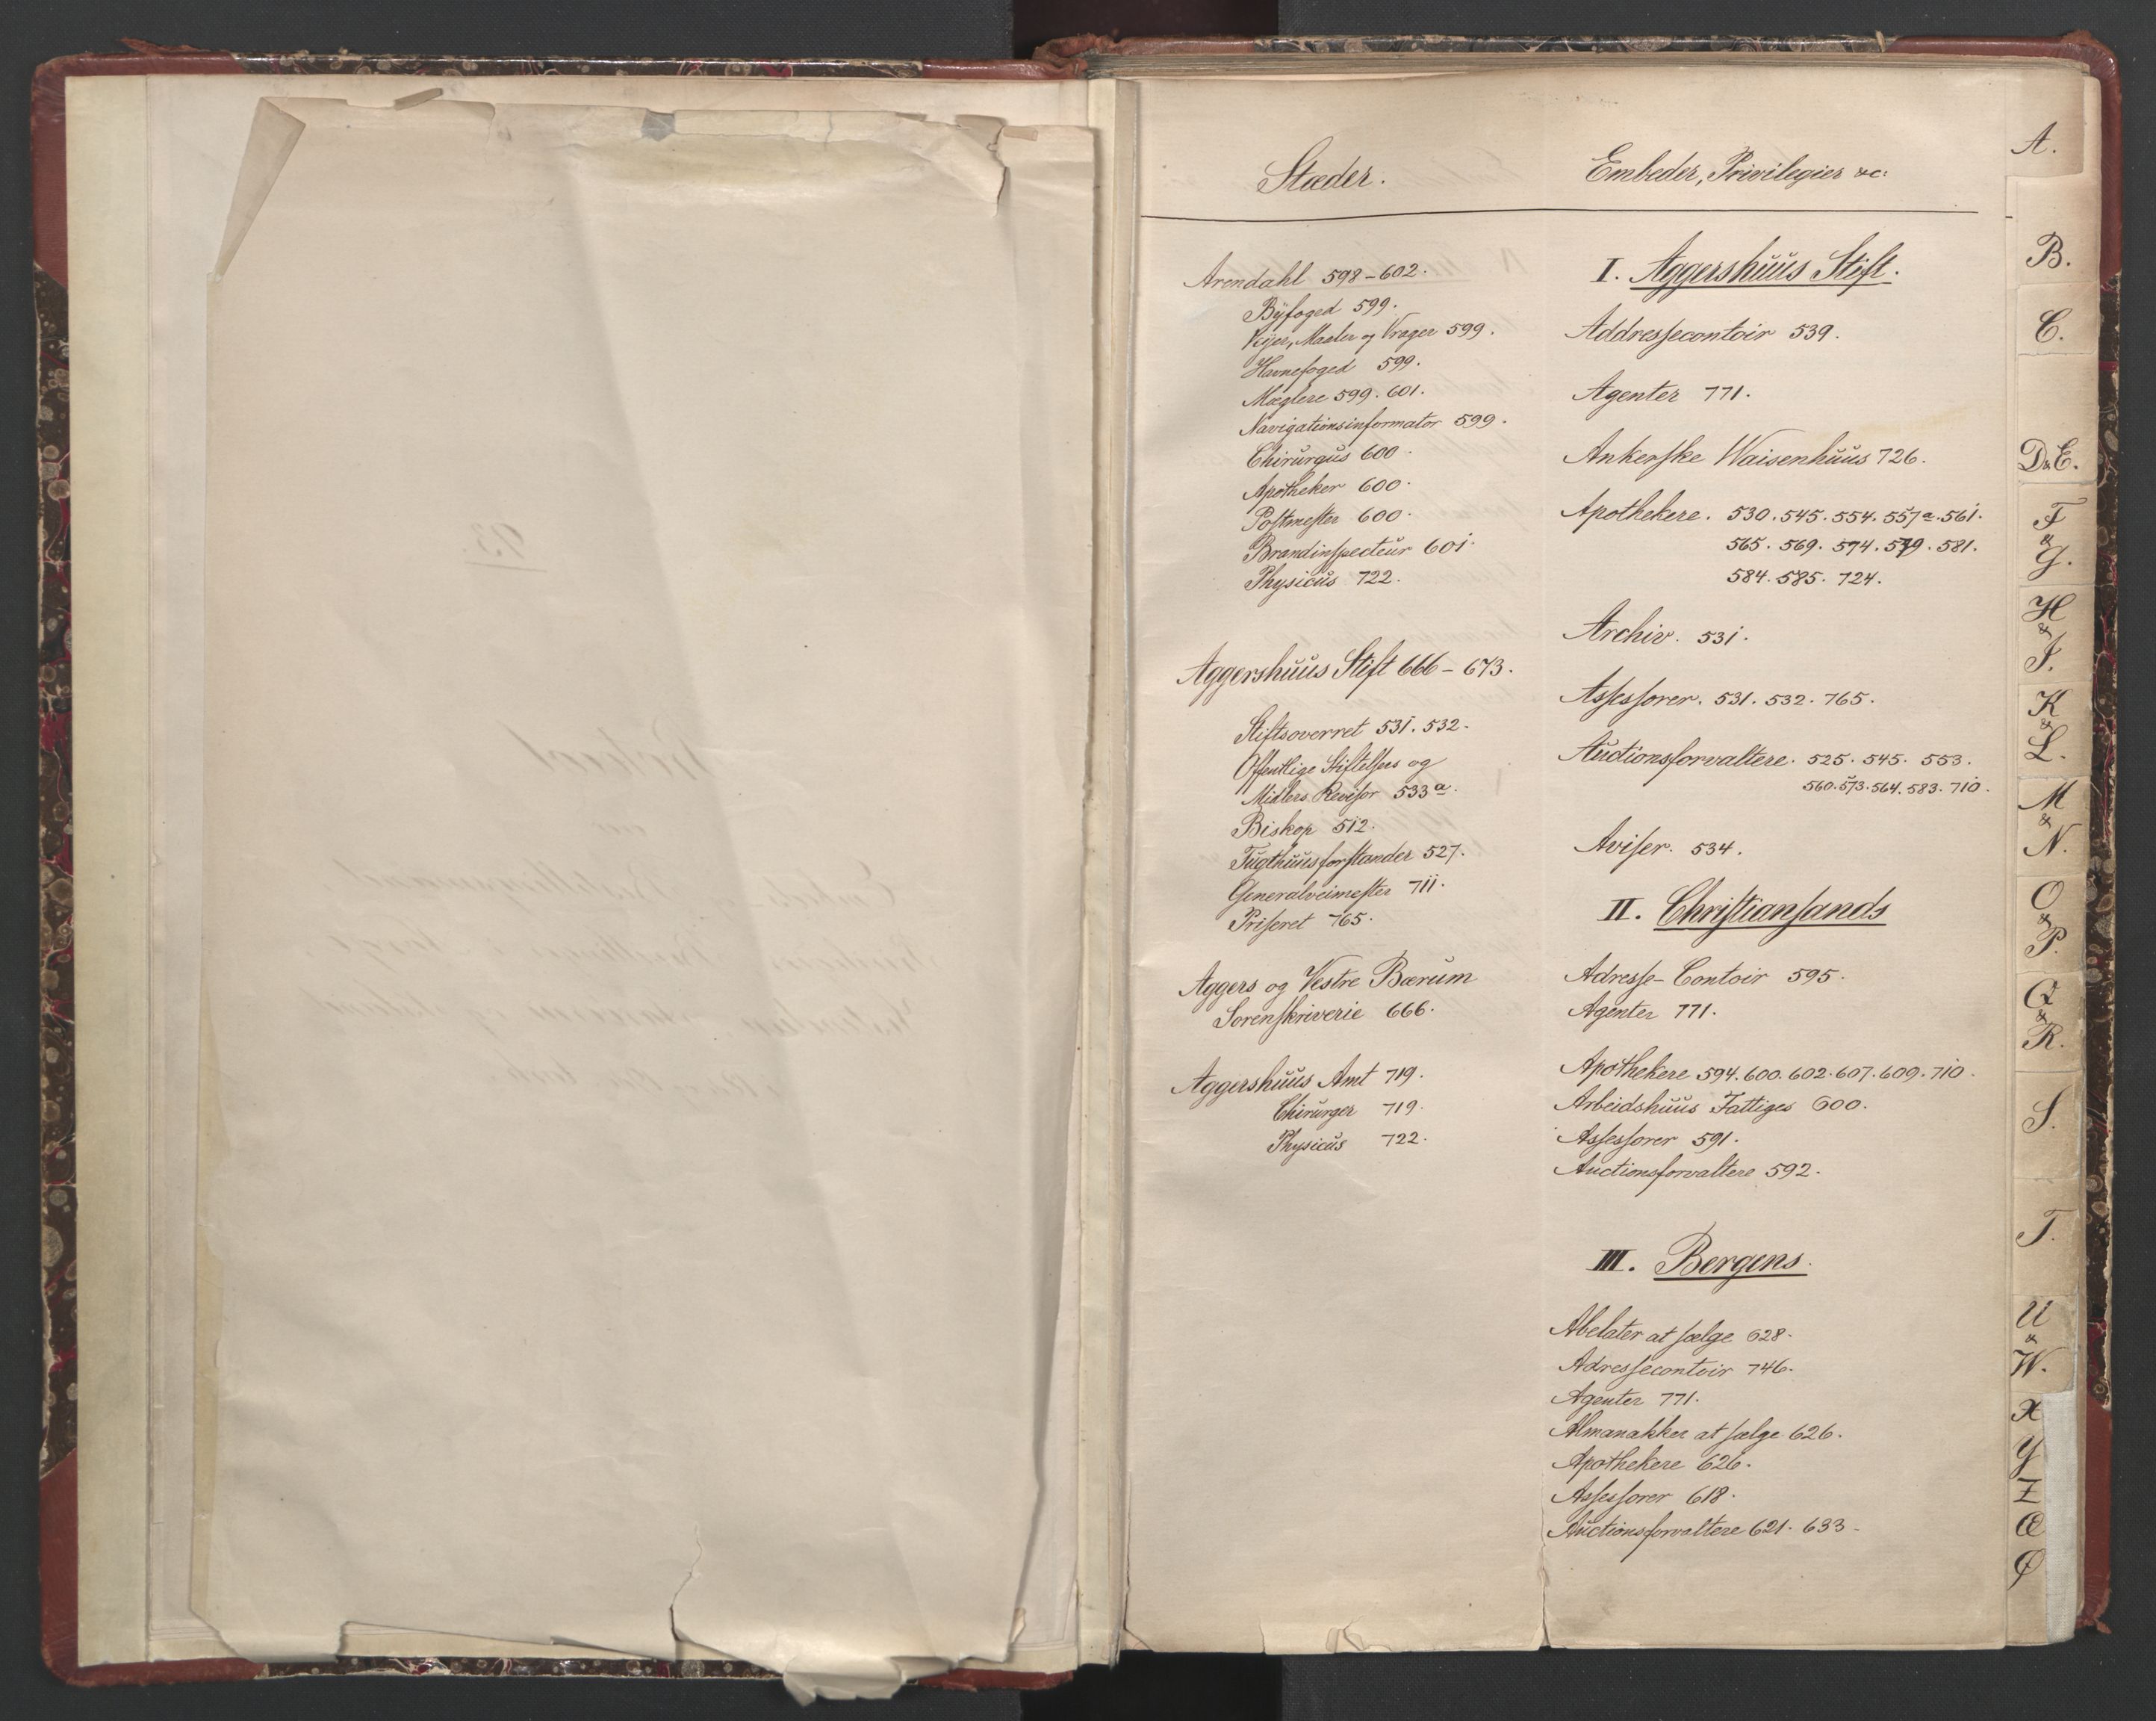 Stæder.
Arendahl 598-602.
Byfoged 599.
Veÿer, Maaler og Vrager 599.
Havnefoged 599.
Mæglere 599. 601.
Navigationsinformator 599.
Chirurgus 600.
Apotheker 600.
Postmester 600.
Brandinspecteur 601.
Physicus 722.
Aggershuus Stift 666-673.
Stiftsoverret 531. 532.
Offentlige Stiftelses og
Midlers Revisor 533a.
Biskop 512.
Tugthuusforstander 527.
Generalveimester 711.
Priseret 765.
Aggers og Vestre Bærum
Sorenskriverie 666.
Aggershuus Amt 719.
Chirurger 719.
Physicus 722.
Embeder, Privilegier &c:
I. Aggershuus Stift.
Addressecontoir 539.
Agenter 771.
Ankerske Waisenhuus 726.
Apothekere. 530. 545. 554. 557a. 561.
565. 569. 574. 579. 581.
584. 585. 724.
Archiv. 531.
Assessorer. 531. 532. 765.
Auctionsforvaltere. 525. 545. 553.
560. 573. 564. 583. 710.
Aviser. 534.
II. Christiansands
Adresse-Contoir 595.
Agenter 771.
Apothekere 594. 600. 602. 607. 609. 710.
Arbeidshuus Fattiges 600.
Assessorer 591.
Auctionsforvaltere 592.
III. Bergens.
Abelater at sælge 628.
Adressecontoir 746.
Agenter 771.
Almanakker at sælge 626.
Apothekere 626.
Assessorer 618.
Auctionsforvaltere 621. 633.
A.
B.
C.
D&E.
F
&
G.
H
&
I.
K
&
L.
M
&
N.
O
&
P.
Q
&
R.
S.
T.
U
&
W.
X
Y
Z
Æ
Ø